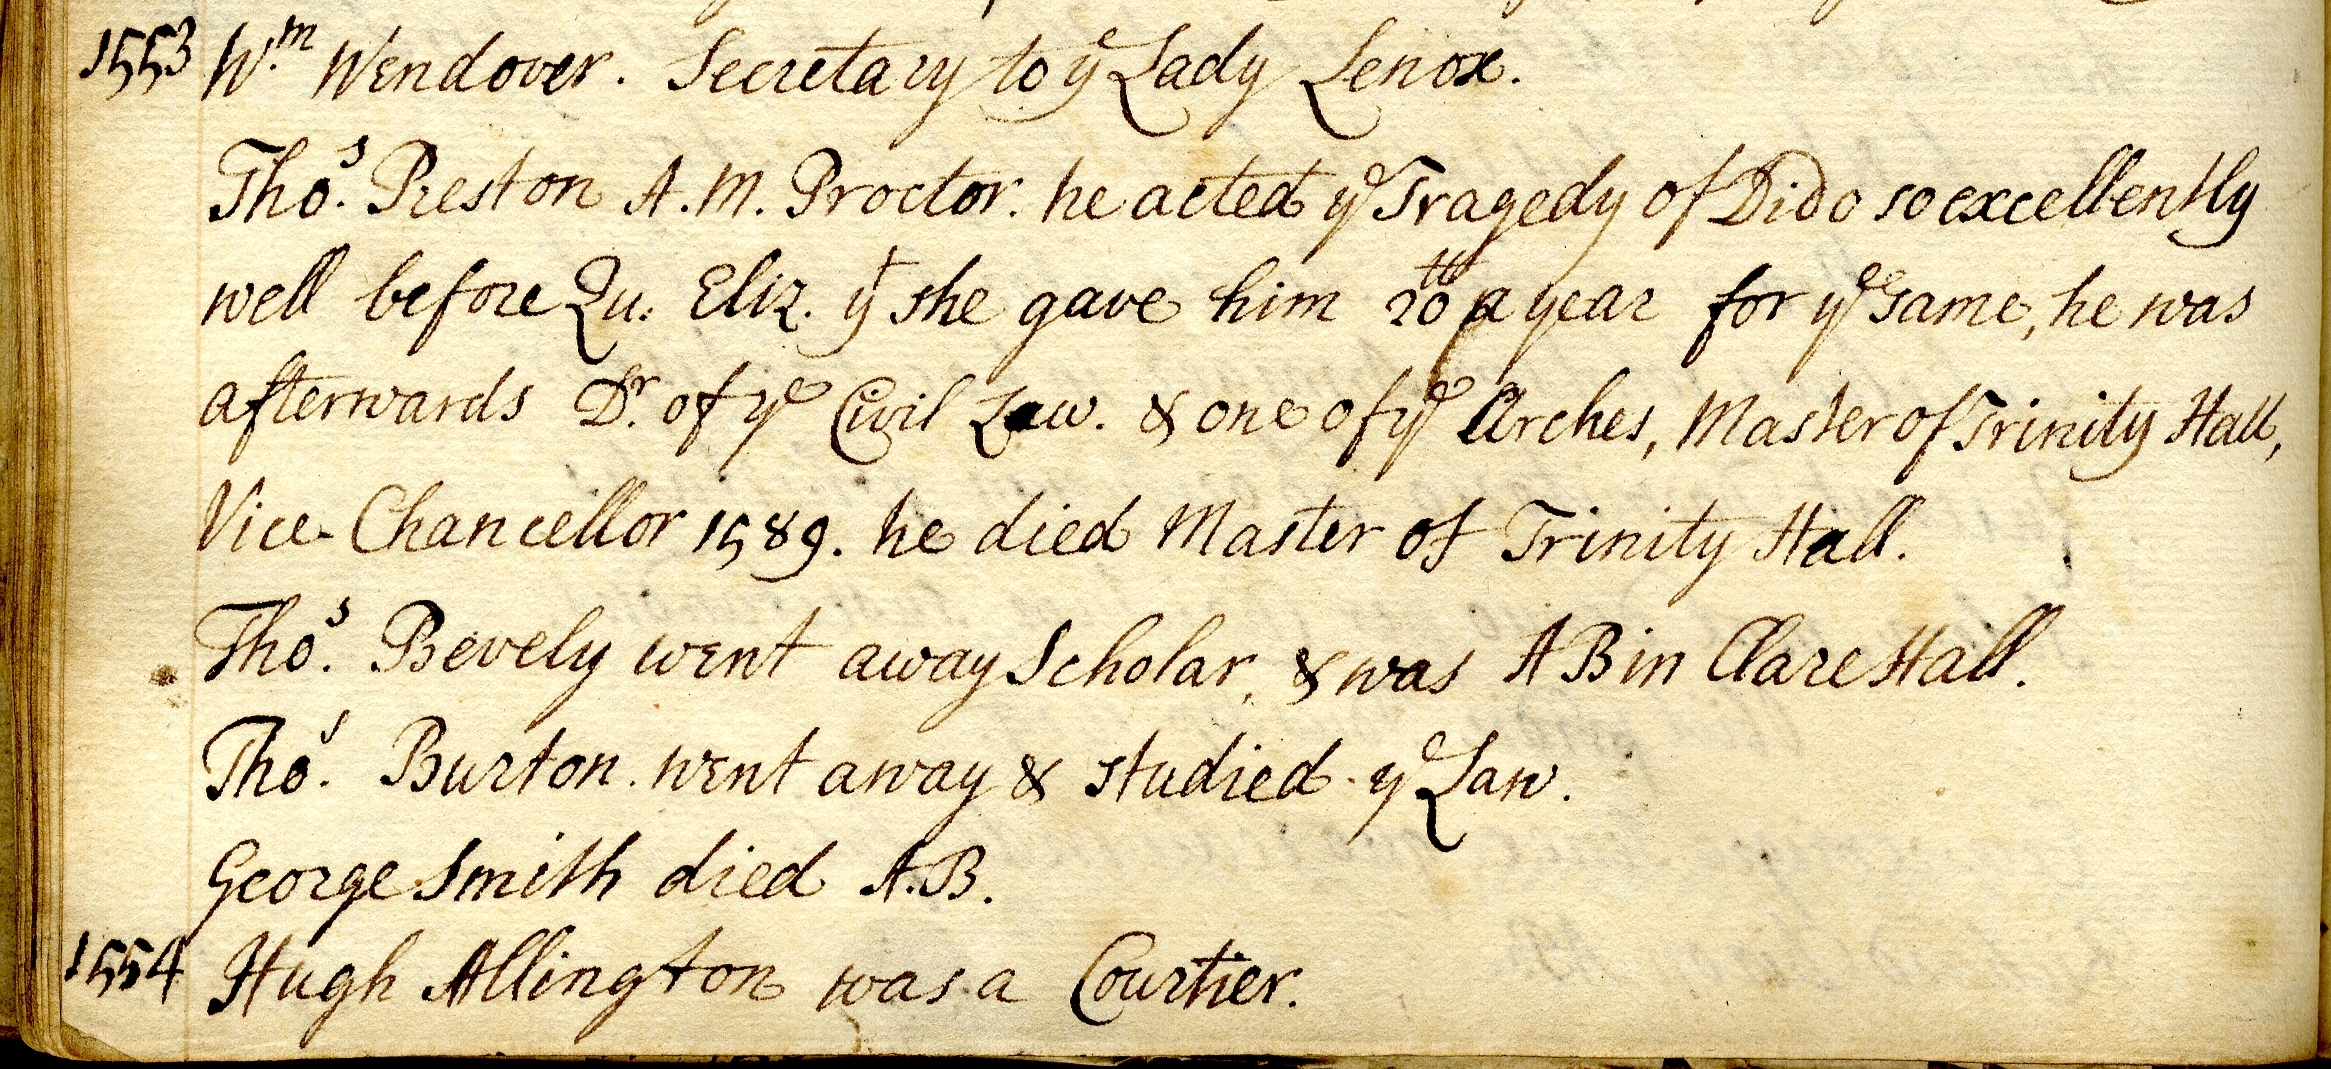 1553 Wm. Wendover. Secretary to ye Lady Lenox.
Thos. Preston A.M. Proctor. he acted ye Tragedy of Dido so excellently
well before Qu. Eliz. yt she gave him 20ll a year for ye same, he was
afterwards Dr. of ye Civil Law. & one of ye Arches, Master of Trinity Hall,
Vice-Chancellor 1589. he died Master of Trinity Hall.
Thos. Bevely went away Scholar, & was AB in Clare Hall.
Thos. Burton. went away & studied ye Law.
George Smith died A.B.
1554 Hugh Allington was a Courtier.